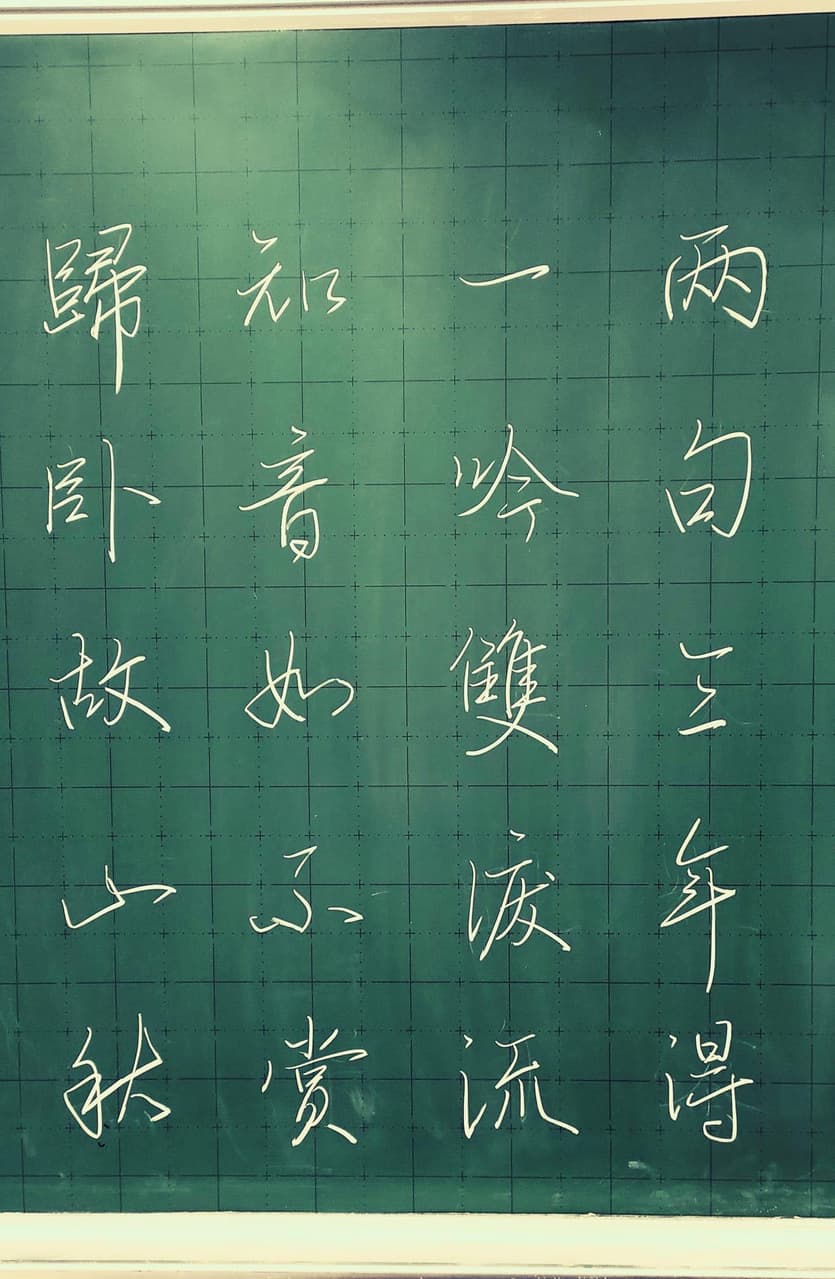 两句三年得
一吟雙淚流
知音如不賞
歸卧故山秋